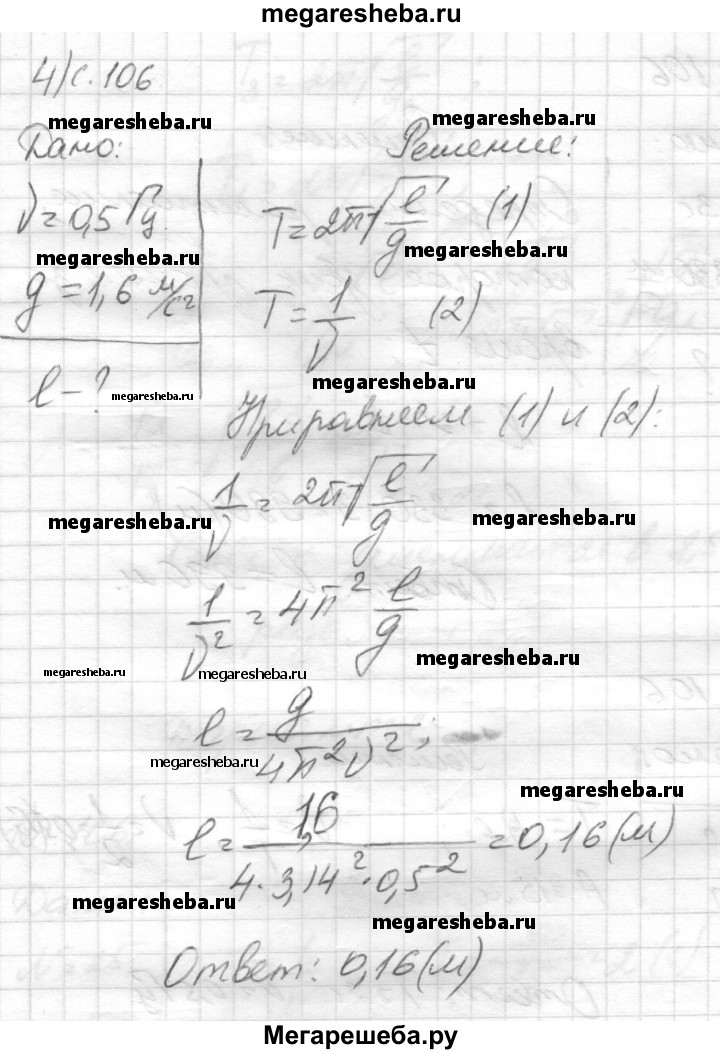 megaresheba.ru
4) с. 106
megaresheba.ru megaresheba.ru
Дано: Решение:
ν = 0,5 Гц. T = 2π√(l/g) (1)
megaresheba.ru megaresheba.ru
g = 1,6 м/с² T = 1/ν (2)
megaresheba.ru
l - ? megaresheba.ru megaresheba.ru
Приравняем (1) и (2):
1/ν = 2π√(l/g)
megaresheba.ru megaresheba.ru
1/ν² = 4π² l/g
megaresheba.ru megaresheba.ru megaresheba.ru
l = g/(4π²ν²);
megaresheba.ru
megaresheba.ru
l = 1,6/(4·3,14²·0,5²) = 0,16 (м)
megaresheba.ru
megaresheba.ru
Ответ: 0,16 (м)
Мегарешеба.ру